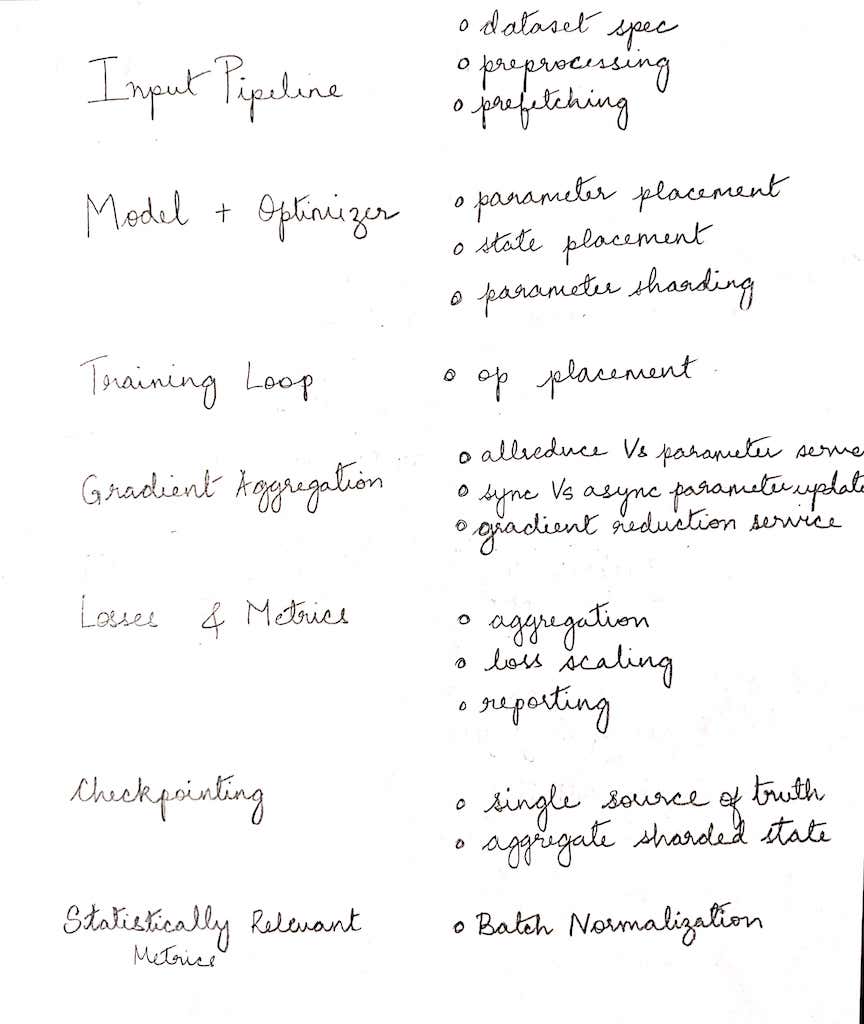 Input Pipeline
o dataset spec
o preprocessing
o prefetching
Model + Optimizer
o parameter placement
o state placement
o parameter sharding
Training Loop
o op placement
Gradient Aggregation
o allreduce Vs parameter serve
o sync Vs async parameter update
o gradient reduction service
Losses & Metrics
o aggregation
o loss scaling
o reporting
Checkpointing
o single source of truth
o aggregate sharded state
Statistically Relevant
Metrics
o Batch Normalization